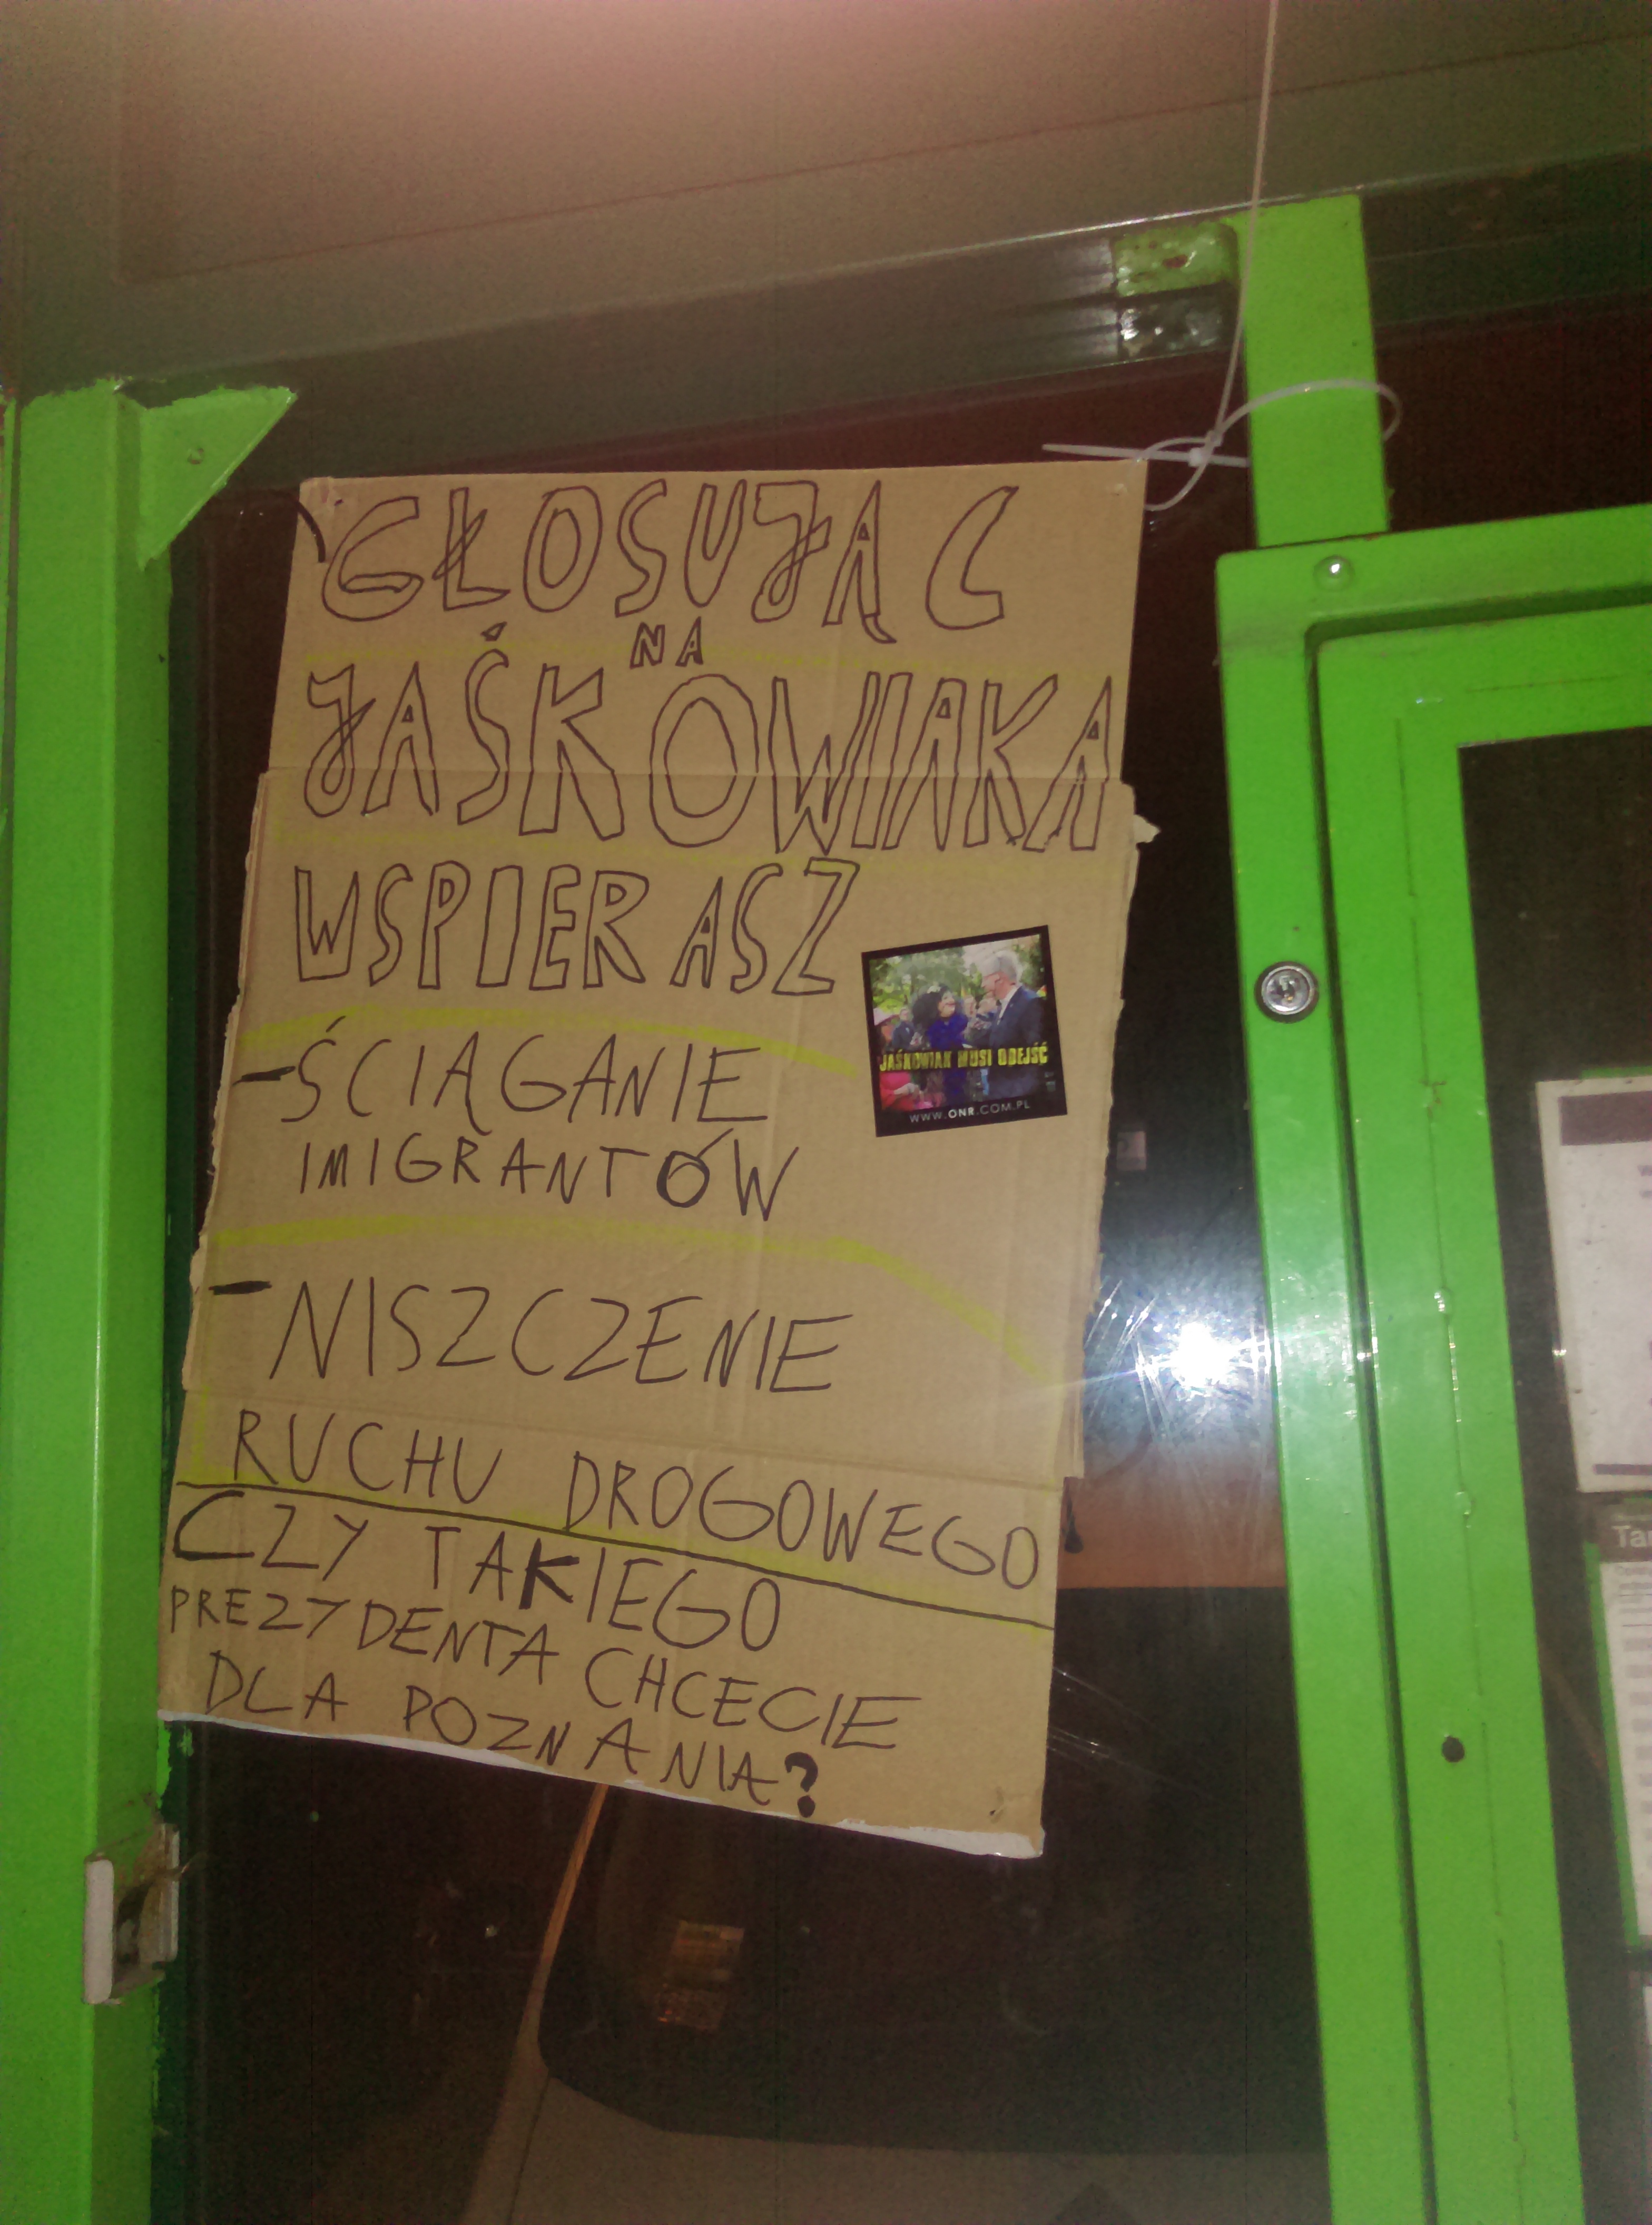 GŁOSUJĄC
NA
JAŚKOWIAKA
WSPIERASZ
-ŚCIĄGANIE
IMIGRANTÓW
-NISZCZENIE
RUCHU DROGOWEGO
CZY TAKIEGO
PREZYDENTA CHCECIE
DLA POZNANIA?
JAŚKOWIAK MUSI ODEJŚĆ
WWW.ONR.COM.PL